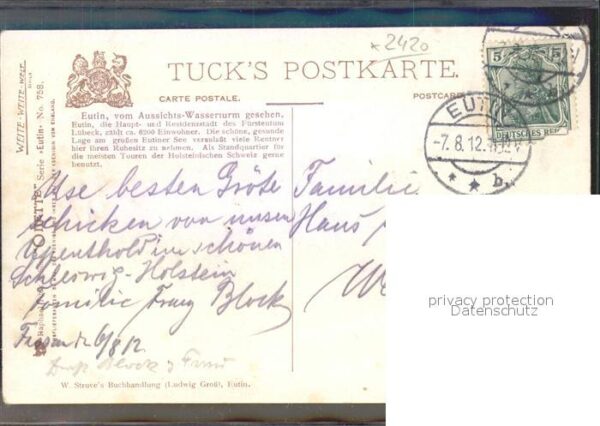 * 2420
TUCK'S POSTKARTE.
CARTE POSTALE.
POSTCARD
5
DEUTSCHES REICH
EUTIN
-7.8.12.
* * b.
WEITE-WEITE-WELT
Serie «Eutin» No. 758.
Eutin, vom Aussichts-Wasserturm gesehen.
Eutin, die Haupt- und Residenzstadt des Fürstentum
Lübeck, zählt ca. 6200 Einwohner. Die schöne, gesunde
Lage am großen Eutiner See veranlaßt viele Rentner
hier ihren Ruhesitz zu nehmen. Als Standquartier für
die meisten Touren der Holsteinischen Schweiz gerne
benutzt.
besten Gröte
schicken von unsen
in schönen
Schleswig-Holstein
Familie Franz Block
6/8 12
Block
Familie
Haus
W. Struve's Buchhandlung (Ludwig Groß), Eutin.
privacy protection
Datenschutz